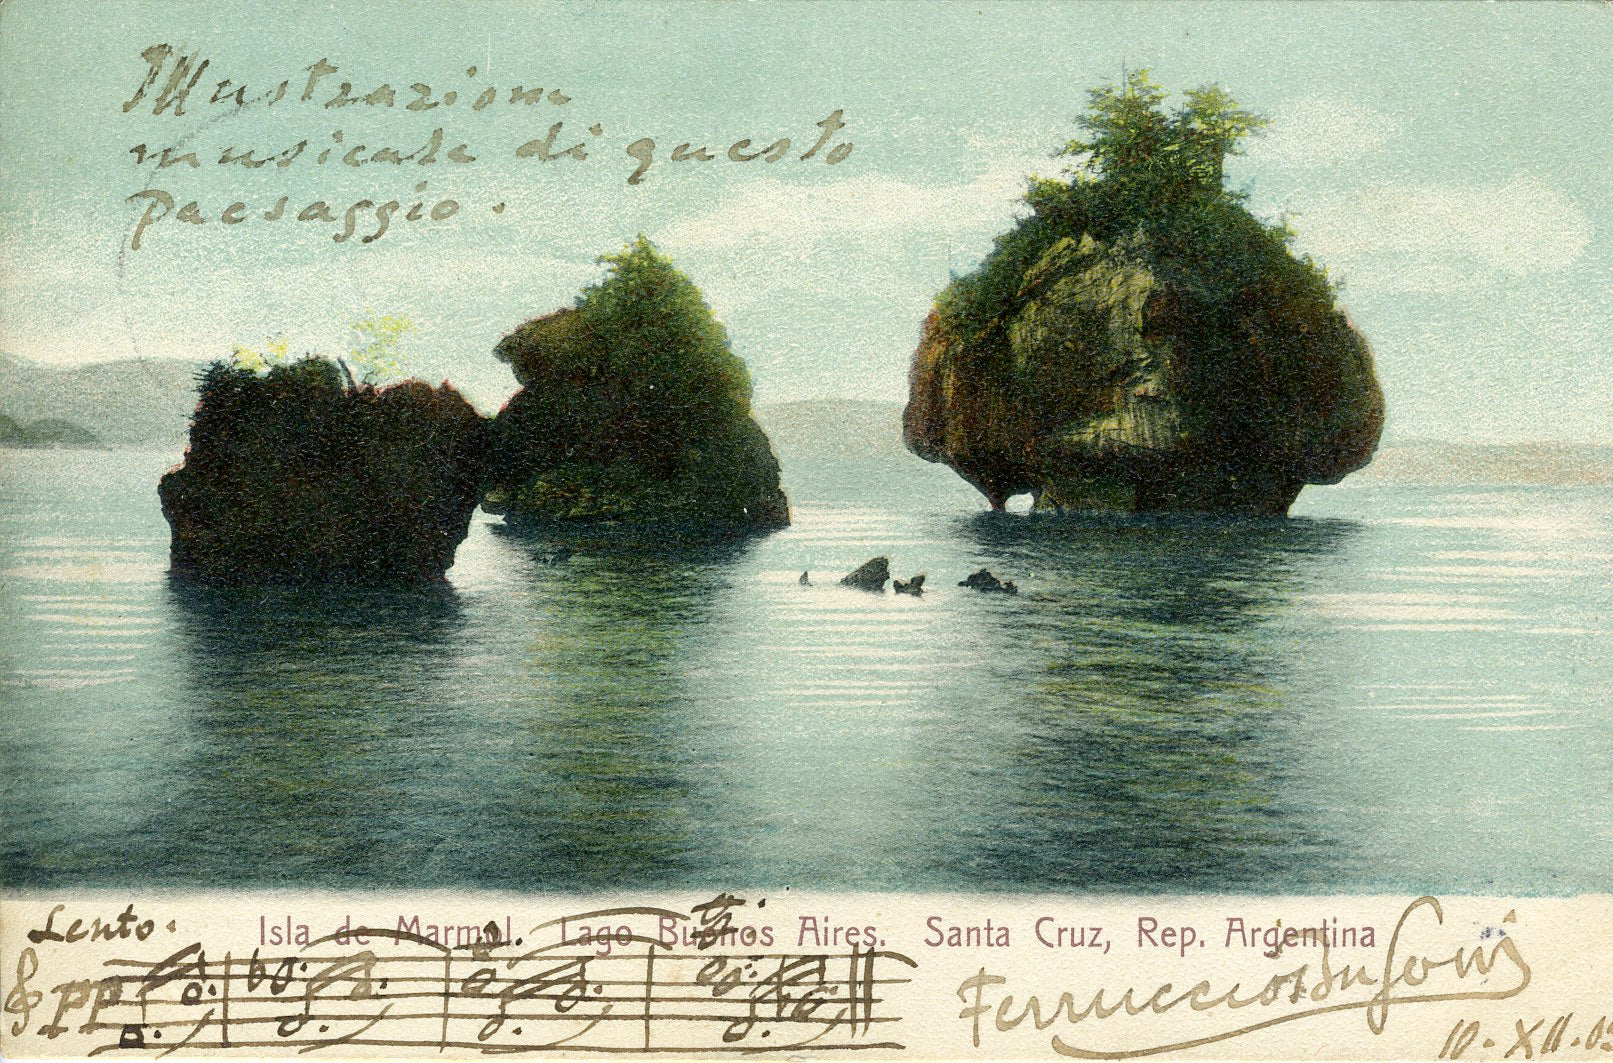 Illustrazione
musicale di questo
paesaggio.
Lento.
Isla de Marmol. Lago Buenos Aires. Santa Cruz, Rep. Argentina
pp
Ferruccio Busoni